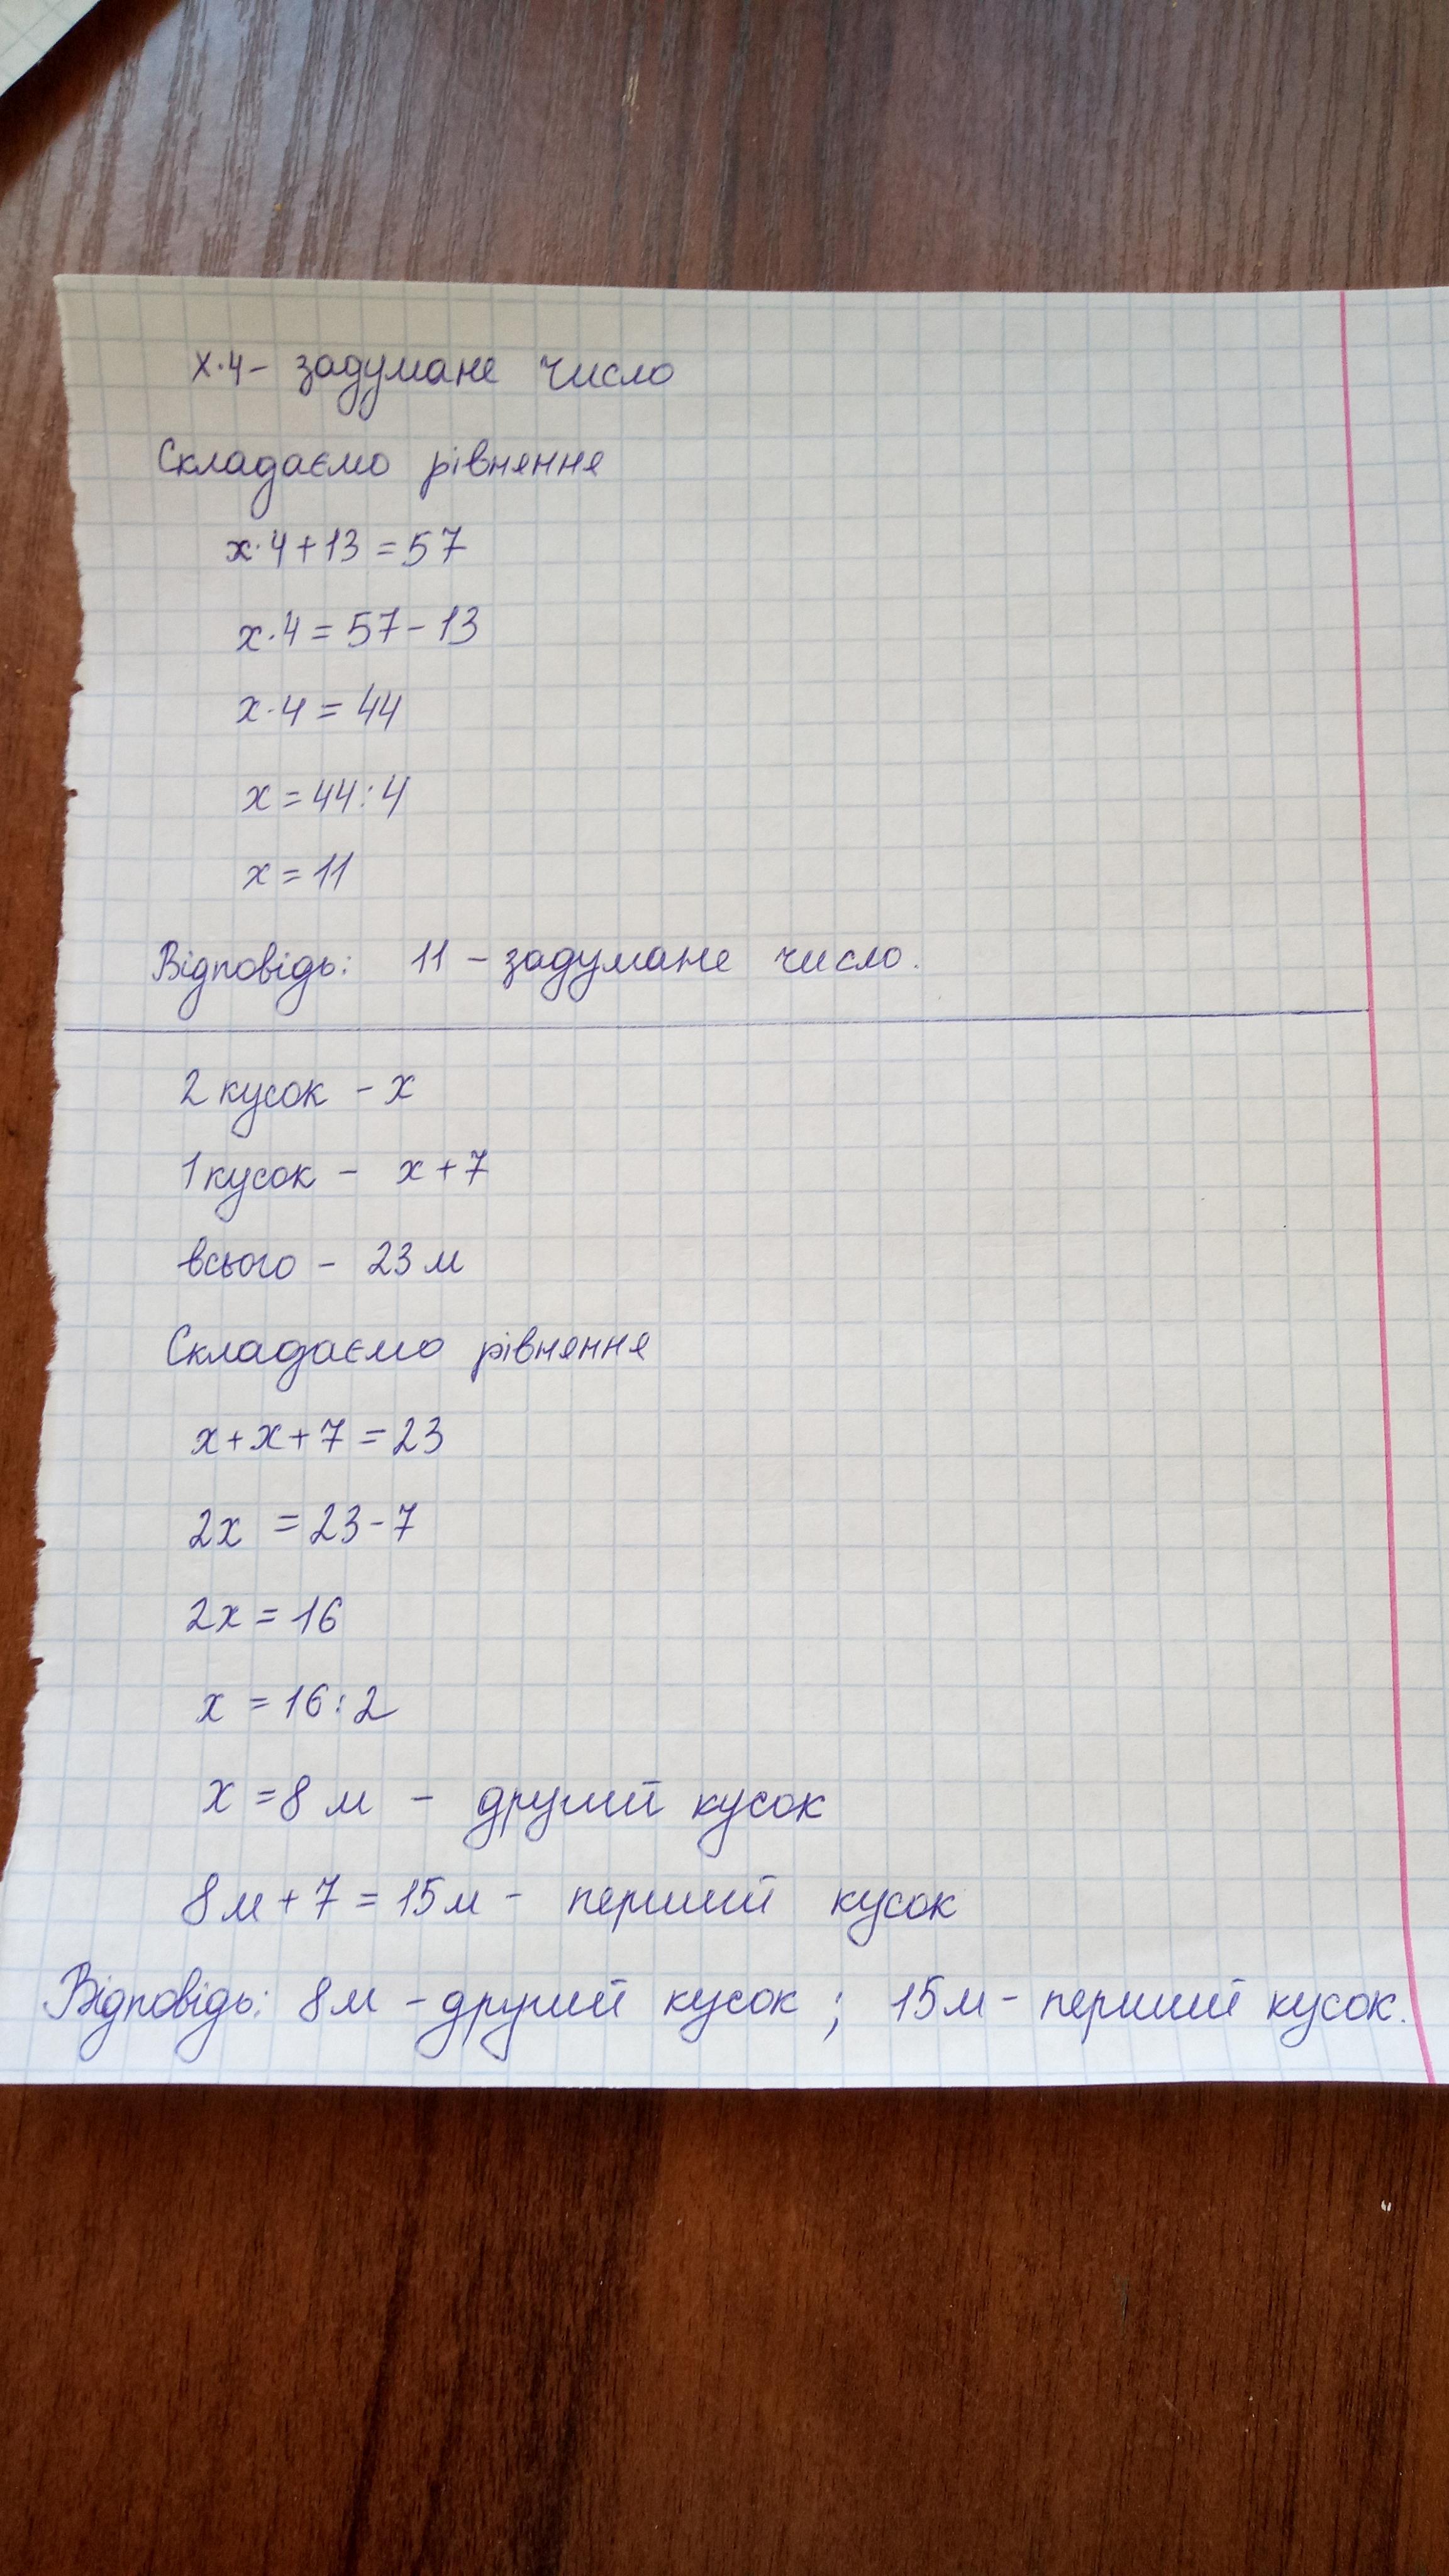 x·4 - задумане число
Складаємо рівняння
x·4+13=57
x·4=57-13
x·4=44
x=44:4
x=11
Відповідь: 11 - задумане число.
2 кусок - x
1 кусок - x+7
всього - 23 м
Складаємо рівняння
x+x+7=23
2x =23-7
2x=16
x =16:2
x =8 м - другий кусок
8 м+7=15 м - перший кусок
Відповідь: 8 м - другий кусок ; 15 м - перший кусок.